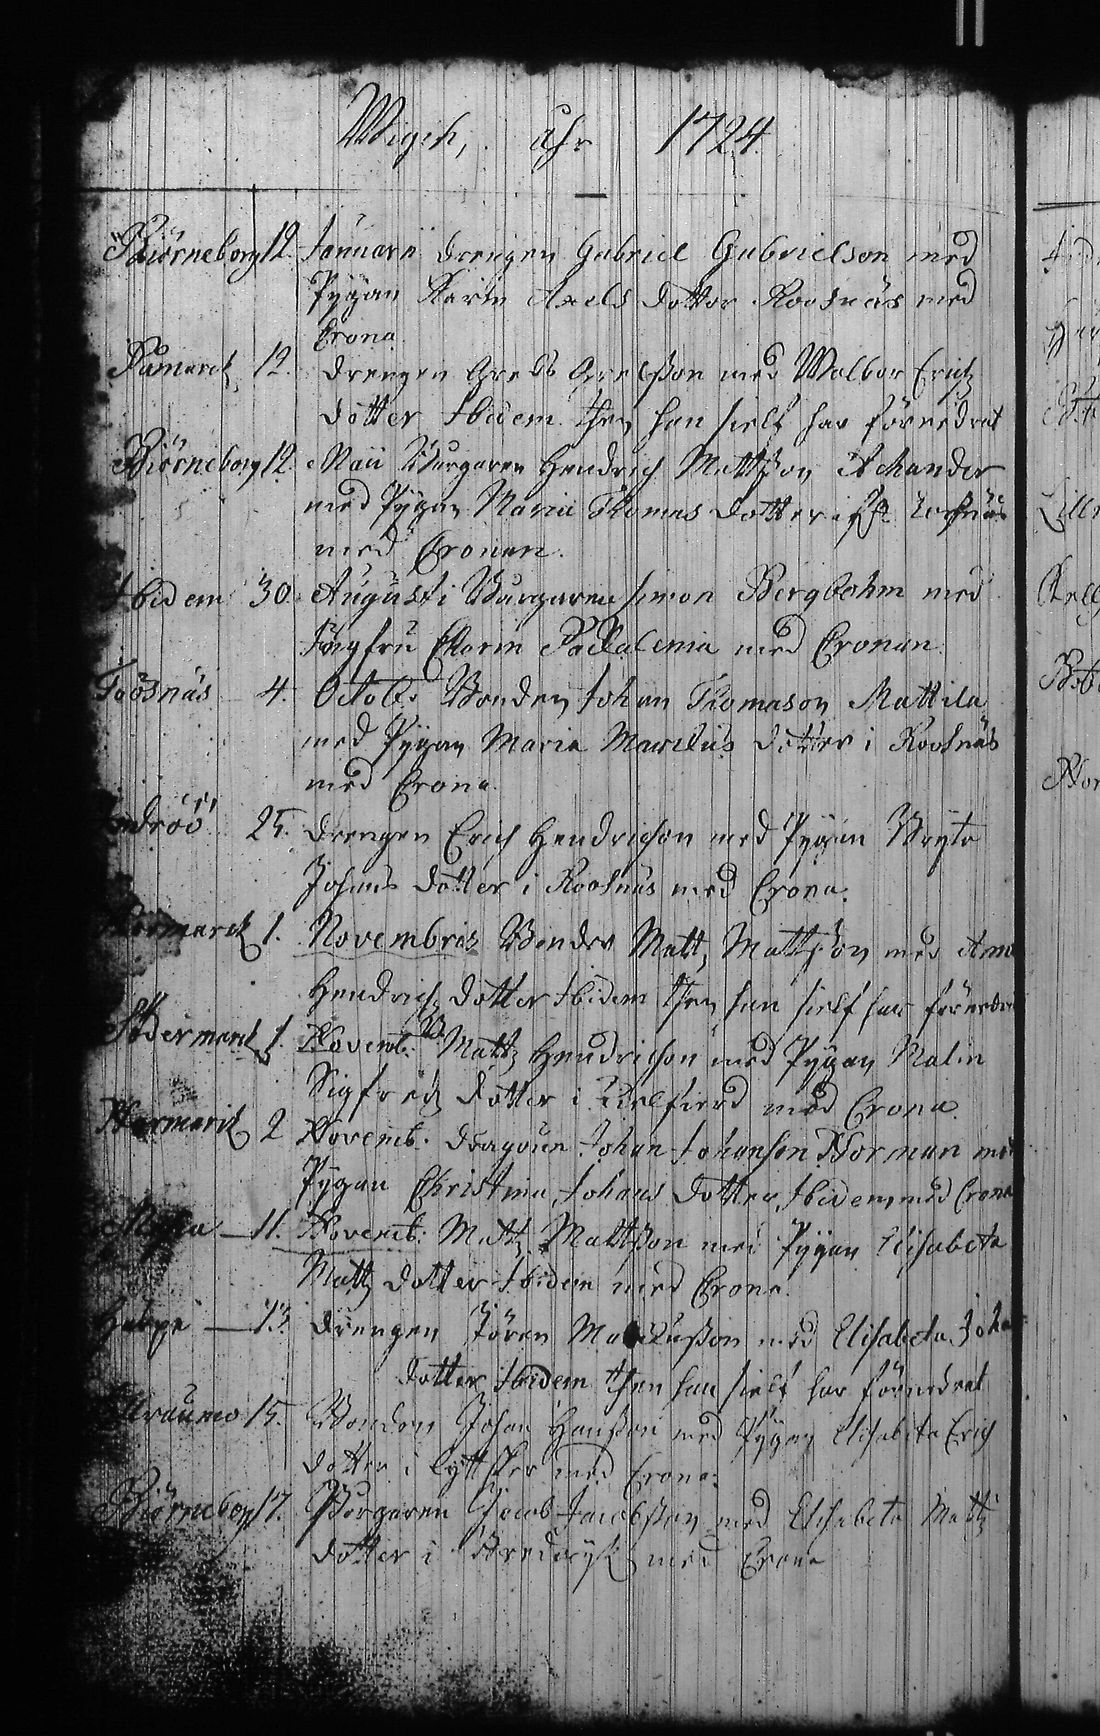 Wigde, åhr 1724.
Biörneborg 12. Januarii drengen Gabriel Gabrielson med
Pygan Karin Axels dotter Roosnäs med
Crona.
Påmarck 12. drengen med Walbor Erichz
dotter Ibidem then han sielf har förnedrat
Biörneborg 12. Maii Burgaren Hendrich Mattsson
med Pygan Maria Thomas dotter
med Cronan.
Ibidem 30. Augusti Burgaren Simon Bergbohm med
Jungfru Carin med Cronan.
Toosnäs 4. Octob: Bonden Johan Thomason Mattila
med Pygan Maria Marcus dotter i Roosnäs
med Crona.
25. drengen Erich Hendrichson med Pygan Bryta
Johans dotter i Roosnäs med Crona.
Norrmarck 1. Novembris Bonden Matt, Mattsson med Anna
Hendrichz dotter Ibidem then han sielf har
Södermarck 1. Novemb: Mattz Hendrichson med Pygan Malin
Sigfredz dotter i med Crona.
Norrmarck 2 Novemb: dragoun Johan Johanson Norman med
Pygan Christina Johans dotter, Ibidem med Crona
11. Novemb: Mattz Mattsson med Pygan Elisabeta
Mattz dotter Ibidem med Crona.
13. drengen Jören med Elisabeta
dotter Ibidem then han sielf har förnedrat
15. Bonden Johan Hansson med Pygan Elisabeta Erich
dotter i med Crona.
Biörneborg 17. Borgaren Jacob Jacobsson med Elisabeta Mattz
dotter i med Crona